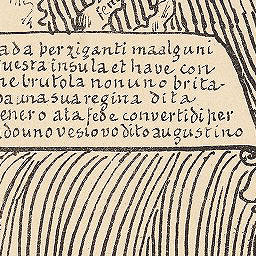 ada per giganti ma alguni
uesta insula et have con
ne brutola non uno brita-
pa una sua regina dita
enero ala fede convertidi per
douno vesvovo dito augustino